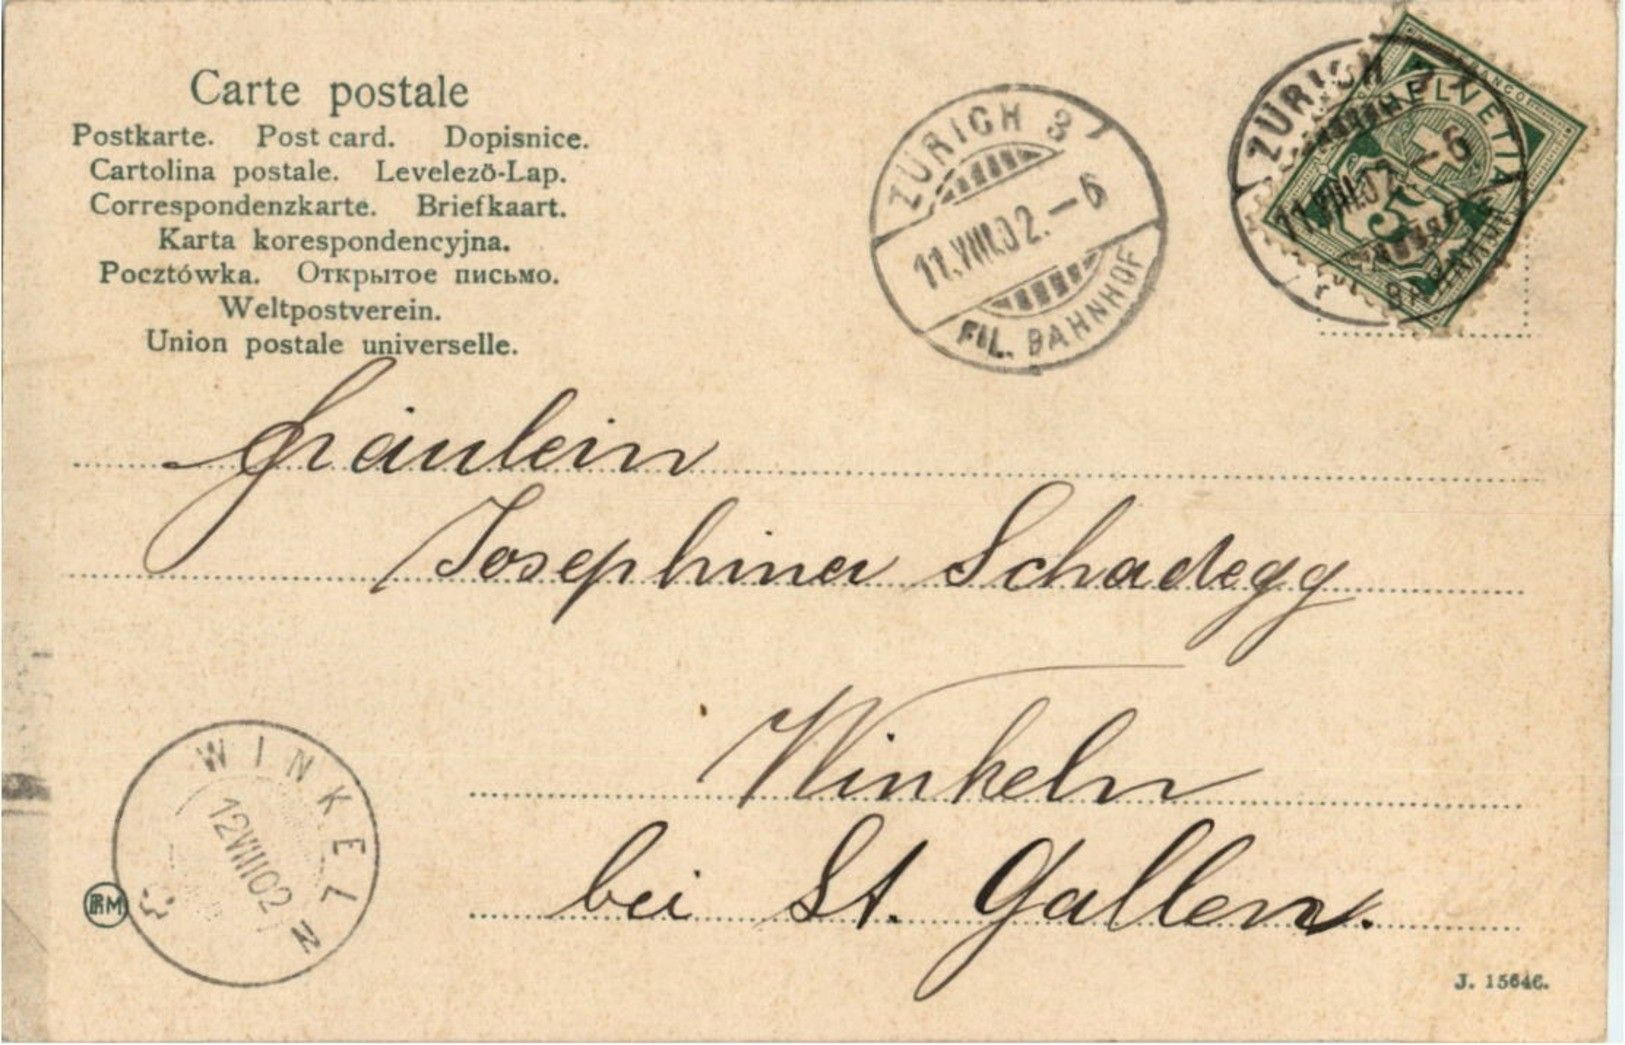 Carte postale
Postkarte. Post card. Dopisnice.
Cartolina postale. Levelezö-Lap.
Correspondenzkarte. Briefkaart.
Karta korespondencyjna.
Pocztówka. Открытое письмо.
Weltpostverein.
Union postale universelle.
ZÜRICH 3
11.VIII.02.–6
FIL. BAHNHOF
FRANCO
HELVETIA
5
ZÜRICH
11.VIII.02.–6
BAHNHOF
Fräulein
Josephine Schadegg
Winkeln
bei St. Gallen.
WINKELN
12VIII02
RM
J. 15646.